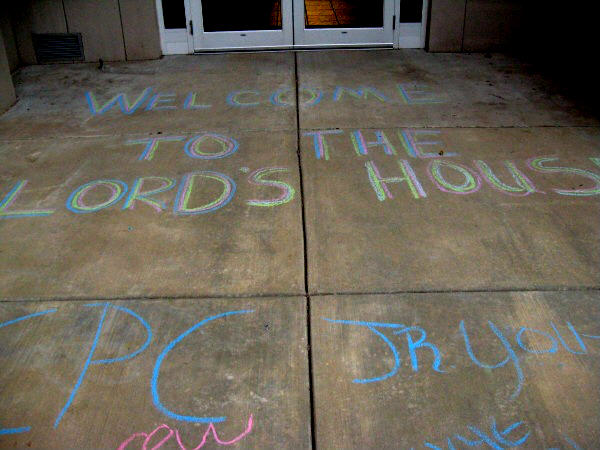 WELCOME
TO THE
LORD'S HOUS
PC JR YOU